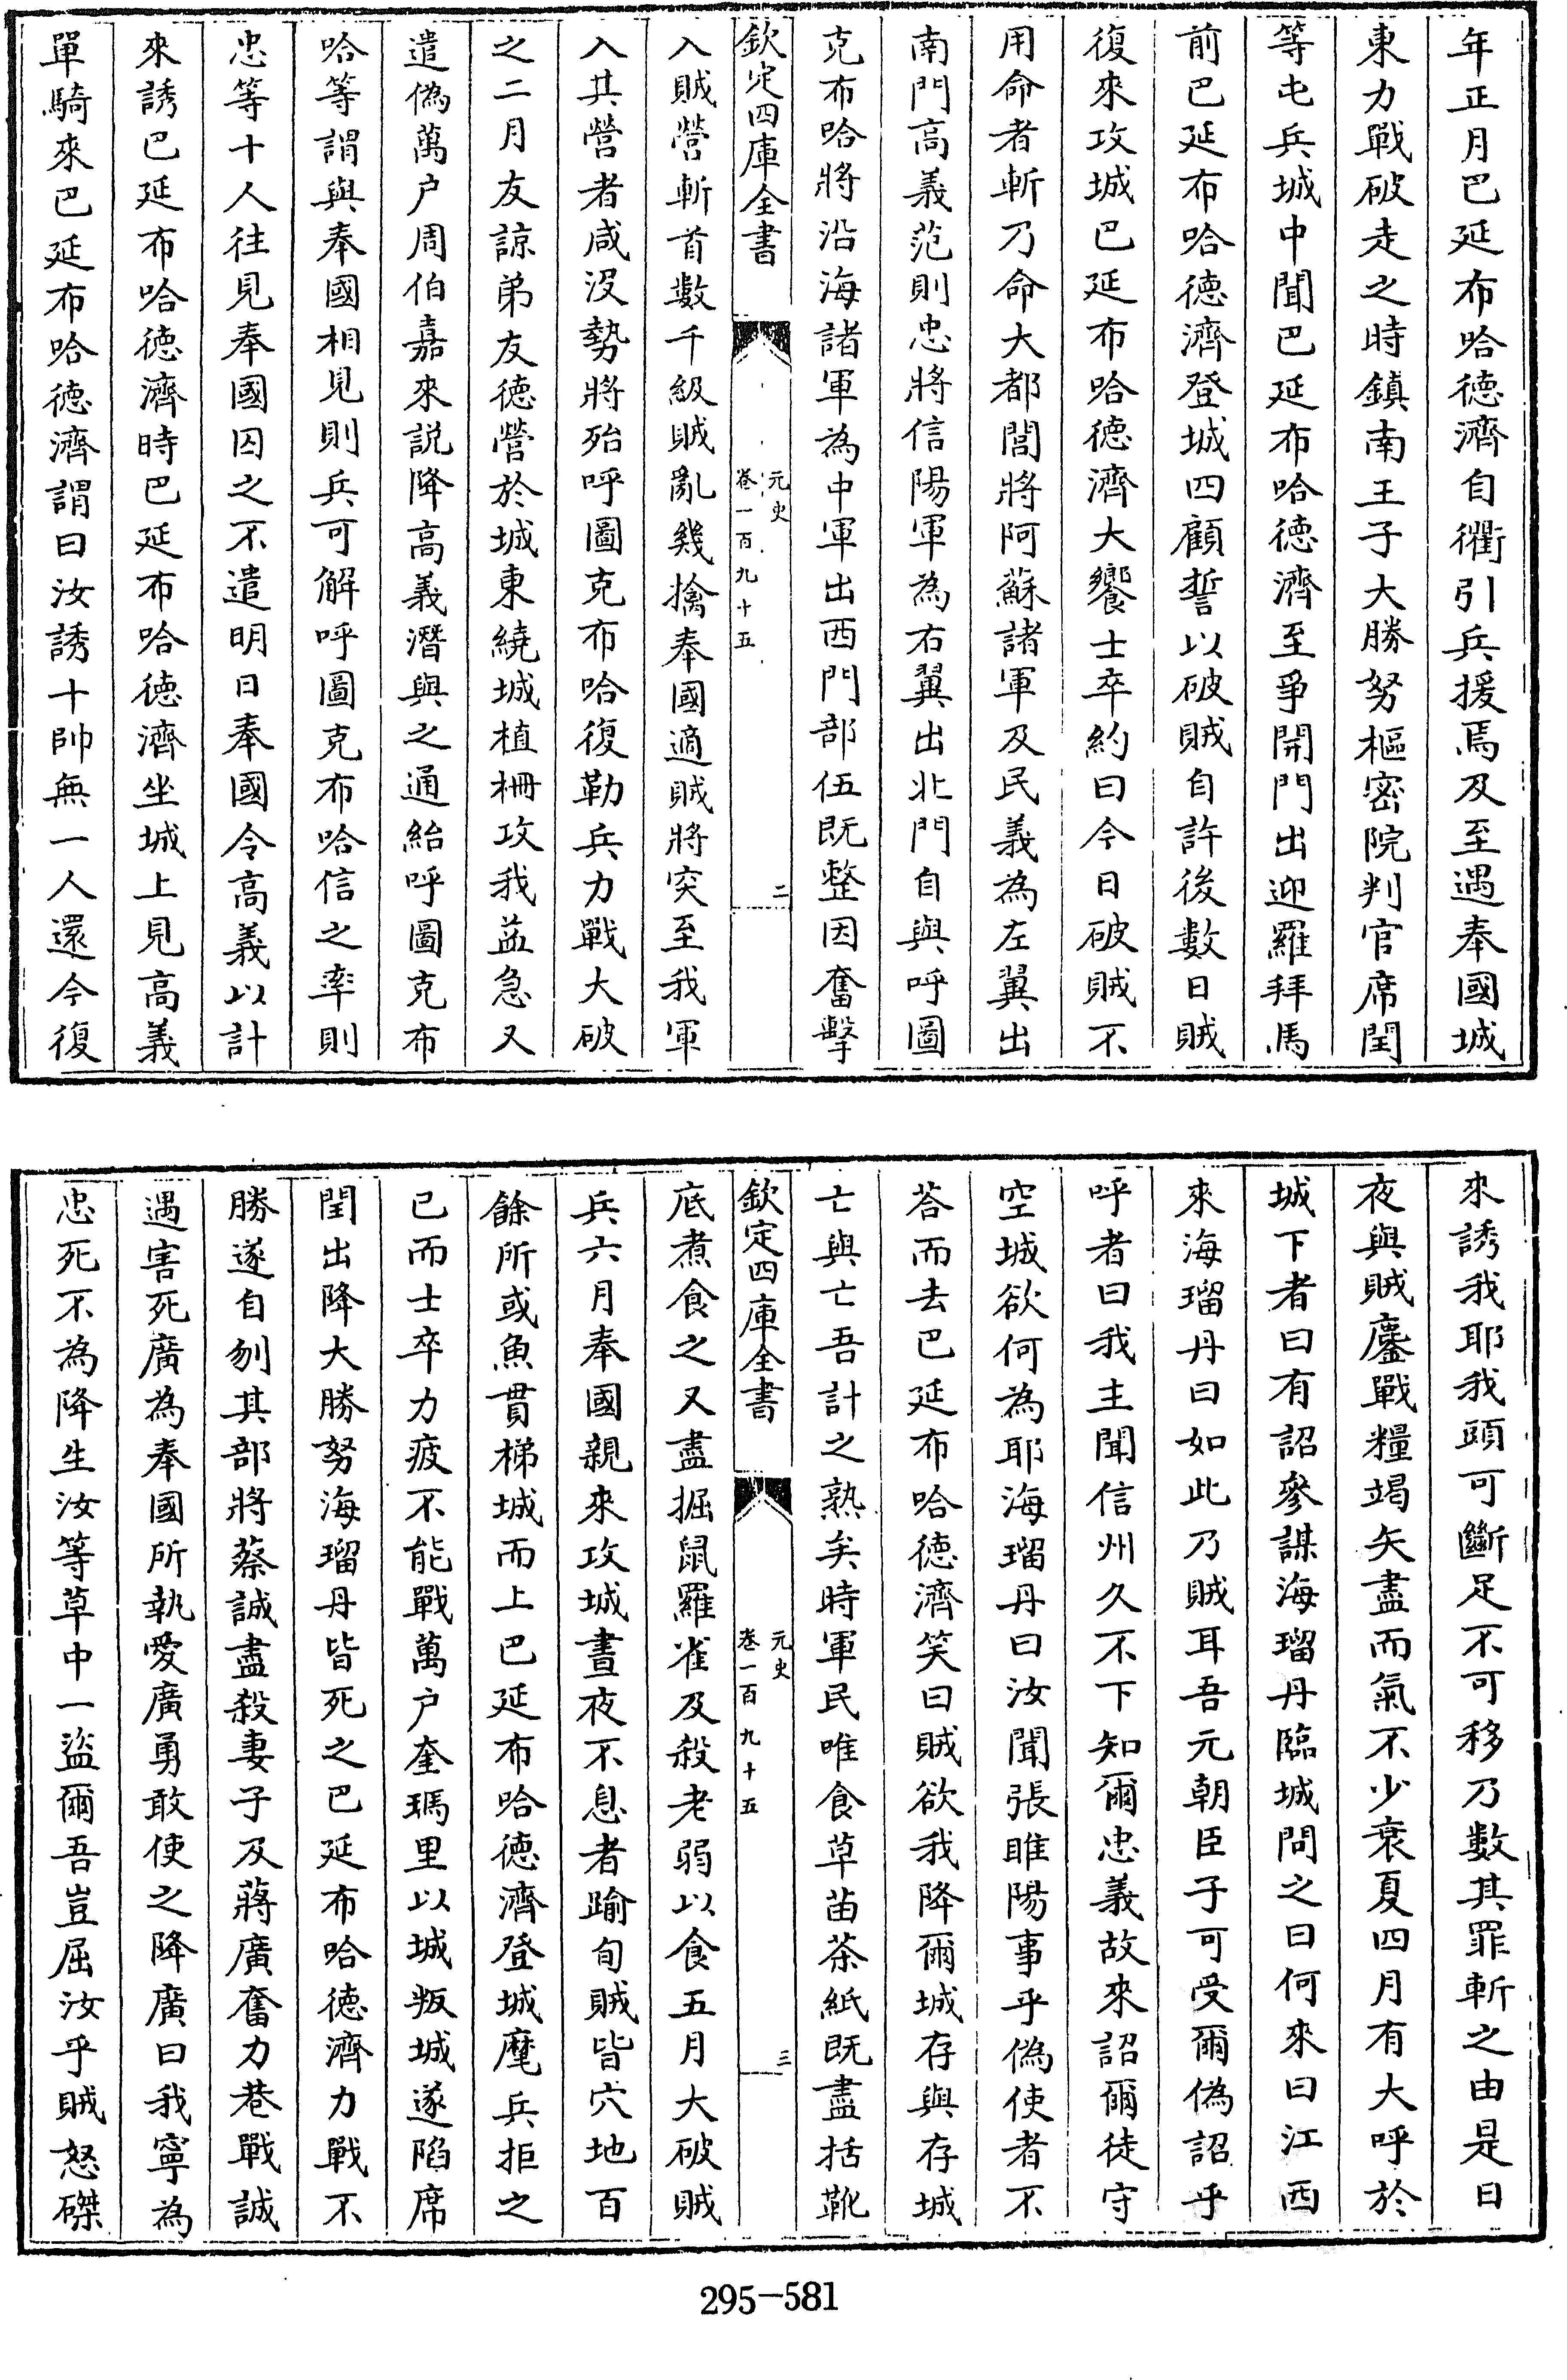 年正月巴延布哈德濟自衢引兵援焉及至遇奉國城
東力戰破走之時鎮南王子大勝努樞密院判官席閏
等屯兵城中聞巴延布哈德濟至爭開門出迎羅拜馬
前巴延布哈德濟登城四顧誓以破賊自許後數日賊
復來攻城巴延布哈德濟大饗士卒約曰今日破賊不
用命者斬乃命大都閭將阿蘇諸軍及民義為左翼出
南門高義范則忠將信陽軍為右翼出北門自與呼圖
克布哈將沿海諸軍為中軍出西門部伍既整因奮擊
欽定四庫全書
元史
卷一百九十五
二
入賊營斬首數千級賊亂幾擒奉國適賊將突至我軍
入其營者咸沒勢將殆呼圖克布哈復勒兵力戰大破
之二月友諒弟友德營於城東繞城植柵攻我益急又
遣偽萬户周伯嘉來説降高義潛與之通紿呼圖克布
哈等謂與奉國相見則兵可解呼圖克布哈信之率則
忠等十人往見奉國囚之不遣明日奉國令高義以計
來誘巴延布哈德濟時巴延布哈德濟坐城上見高義
單騎來巴延布哈德濟謂曰汝誘十帥無一人還今復
來誘我耶我頭可斷足不可移乃數其罪斬之由是日
夜與賊鏖戰糧竭矢盡而氣不少衰夏四月有大呼於
城下者曰有詔參謀海瑠丹臨城問之曰何來曰江西
來海瑠丹曰如此乃賊耳吾元朝臣子可受爾偽詔乎
呼者曰我主聞信州久不下知爾忠義故來詔爾徒守
空城欲何為耶海瑠丹曰汝聞張睢陽事乎偽使者不
荅而去巴延布哈德濟笑曰賊欲我降爾城存與存城
亡與亡吾計之熟矣時軍民唯食草苗茶紙既盡括靴
欽定四庫全書
元史
卷一百九十五
三
底煮食之又盡掘鼠羅雀及殺老弱以食五月大破賊
兵六月奉國親來攻城晝夜不息者踰旬賊皆穴地百
餘所或魚貫梯城而上巴延布哈德濟登城麾兵拒之
已而士卒力疲不能戰萬户奎瑪里以城叛城遂陷席
閏出降大勝努海瑠丹皆死之巴延布哈德濟力戰不
勝遂自刎其部將蔡誠盡殺妻子及蔣廣奮力巷戰誠
遇害死廣為奉國所執愛廣勇敢使之降廣曰我寧為
忠死不為降生汝等草中一盜爾吾豈屈汝乎賊怒磔
295-581